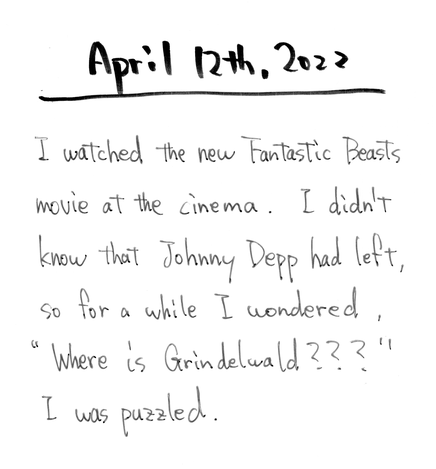 April 12th, 2022
I watched the new Fantastic Beasts
movie at the cinema. I didn't
know that Johnny Depp had left,
so for a while I wondered,
"Where is Grindelwald???"
I was puzzled.